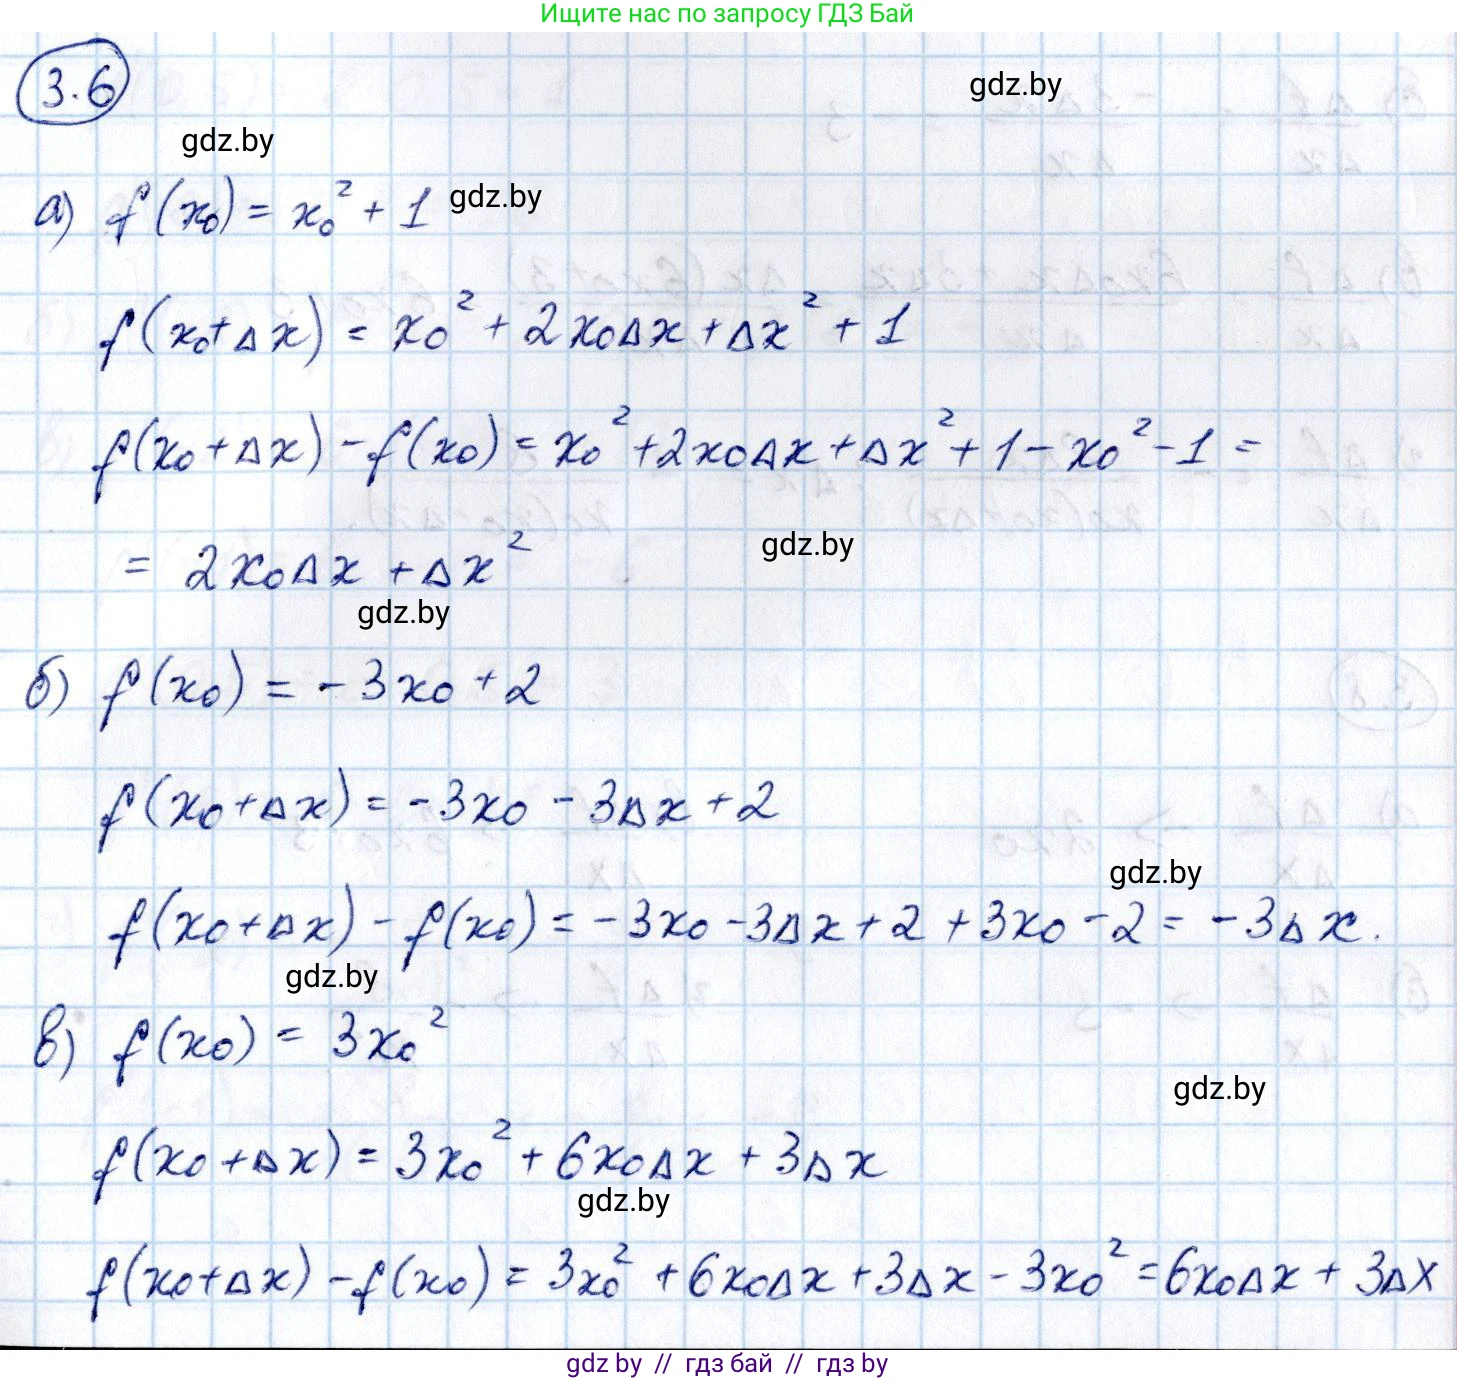 Ищите нас по запросу ГДЗ Бай
3.6
gdz.by
gdz.by
а) f(x₀) = x₀² + 1
gdz.by
f(x₀+Δx) = x₀² + 2x₀Δx + Δx² + 1
f(x₀+Δx) - f(x₀) = x₀² + 2x₀Δx + Δx² + 1 - x₀² - 1 =
gdz.by
= 2x₀Δx + Δx²
gdz.by
б) f(x₀) = -3x₀ + 2
f(x₀+Δx) = -3x₀ - 3Δx + 2
gdz.by
f(x₀+Δx) - f(x₀) = -3x₀ - 3Δx + 2 + 3x₀ - 2 = -3Δx.
gdz.by
в) f(x₀) = 3x₀²
gdz.by
f(x₀+Δx) = 3x₀² + 6x₀Δx + 3Δx
gdz.by
f(x₀+Δx) - f(x₀) = 3x₀² + 6x₀Δx + 3Δx - 3x₀² = 6x₀Δx + 3Δx
gdz by // гдз бай // гдз by